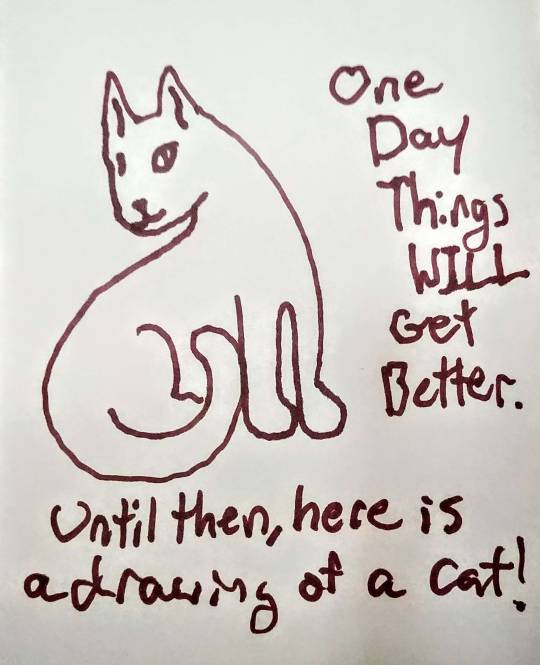 One
Day
Things
WILL
Get
Better.
Until then, here is
a drawing of a cat!